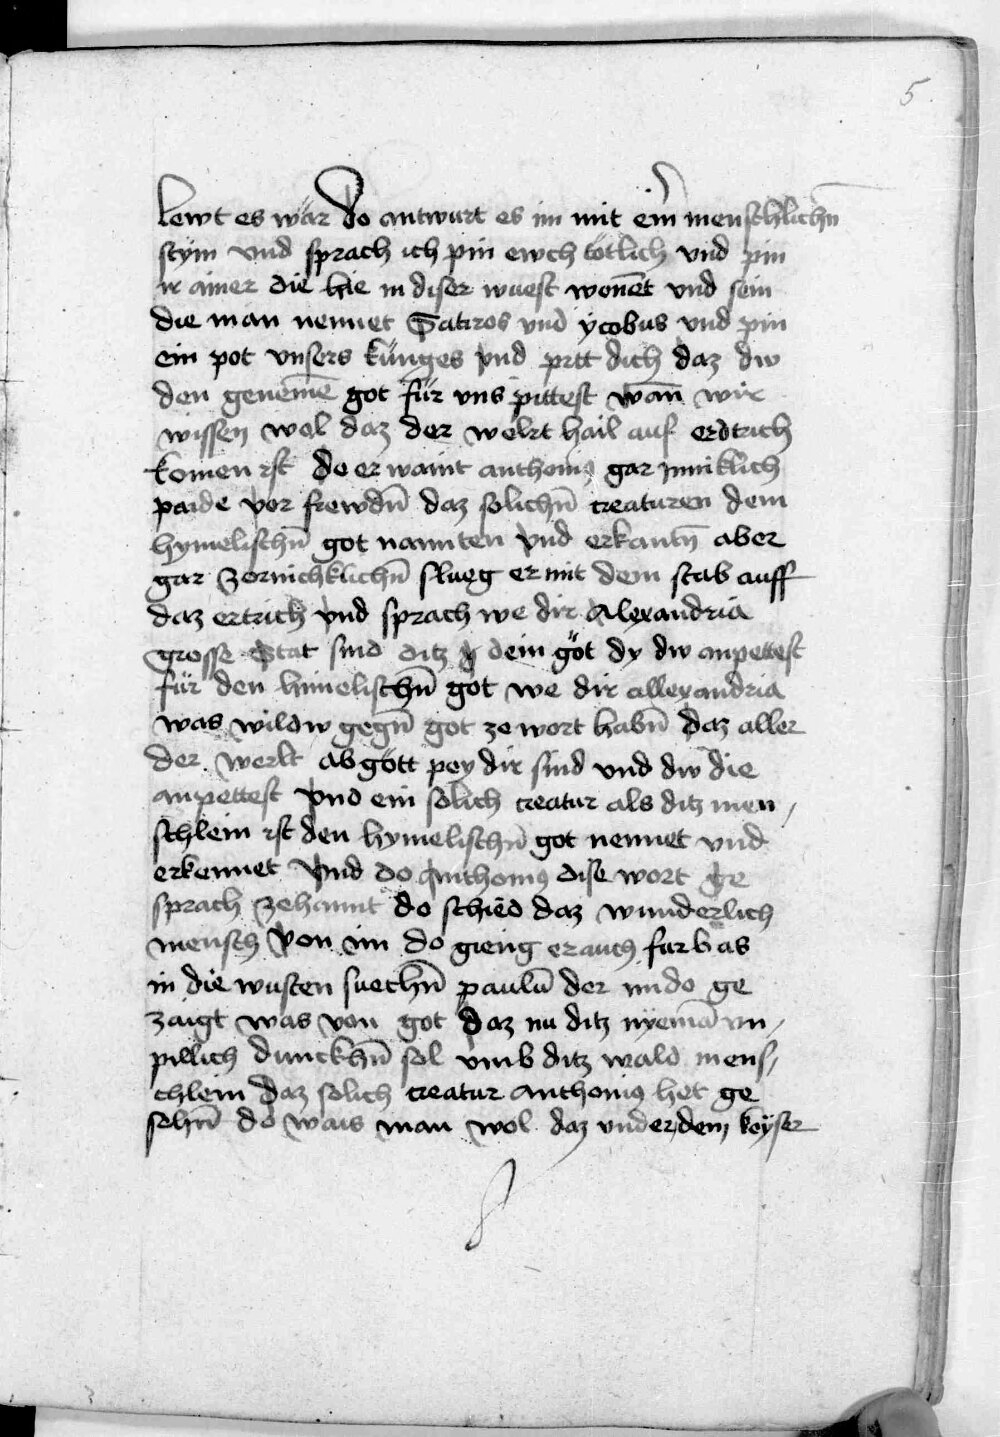 5
lewt es wär do antwurt es im mit eim̄ menschlichn̄
stÿm vnd sprach ich pin ewch tötlich vnd pin
ir ainer die hie in diser wuest wonēt vnd sein
die man nennet Satiros vnd ÿcobus vnd pin
ein pot vnsers künges vnd pitt dich daz dw
den genemē got für vns pittest wan̄ wir
wissen wol daz der welrt hail auf erdtrich
komen ist do er waint anthonius gar inniklich
paide vor frewdn̄ daz solichn̄ creaturen dem
hymelischn̄ got nannten vnd erkantn̄ aber
gar zornichklichn̄ slueg er mit dem stab auff
daz ertrich vnd sprach we dir Alexandria
grosse Stat sind ditz dein göt dy dw anpettest
für den himelischn̄ got we dir allexandria
was wildw gegn̄ got ze wort habn̄ daz aller
der werlt abgött pey dir sind vnd dw die
anpettest vnd ein solich creatur als ditz men
schlein ist den hymelischn̄ got nennet vnd
erkennet vnd do Anthonius dise wort ge
sprach zehannt do schied daz wunderlich
mensch von im do gieng er auch furbas
in die wusten suechn̄ paulū der im do ge
zaigt was von got daz nu ditz nyemā vn
pillich dunckhn̄ sol vmb ditz wald mens
chlein daz solich creatur Anthonius het ge
sehn̄ do wais man wol daz vnder dem keÿser